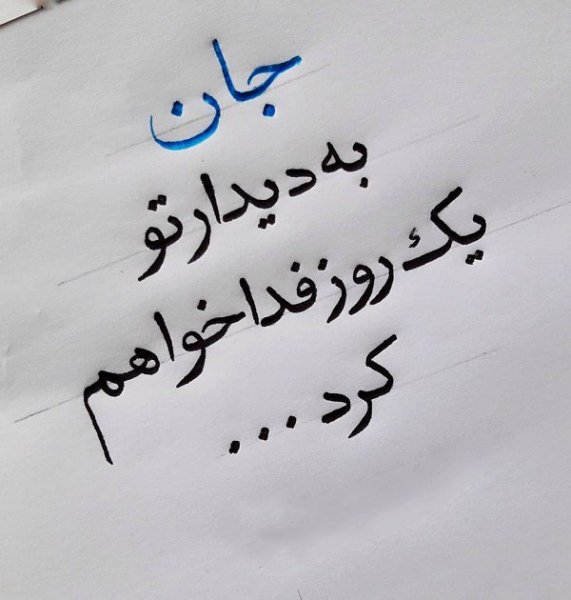 جان
به دیدار تو
یک روز فدا خواهم
کرد ...